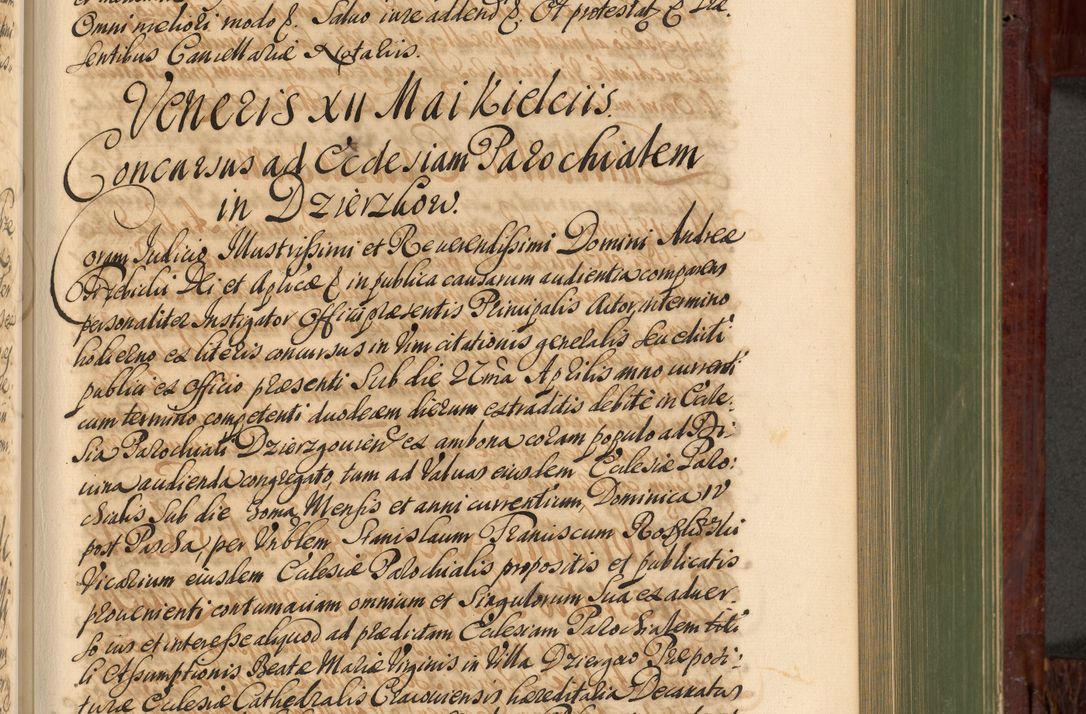 Omni meliori modo &. Salvo iure addend &. Et protestat & Præ-
sentibus Cancellariæ Notariis.
Veneris XII Mai Kielciis.
Concursus ad Ecclesiam Parochialem
in Dzierzkow.
Coram Judicio Illustrissimi et Reverendissimi Domini Andreæ
Przebicki Dei et Aplicæ & in publica causarum audientia comparens
personaliter Instigator Officii præsentis Principalis Actor, in termino
hodierno ex literis concursus in Vim citationis generalis seu edicti
publici ex officio præsenti sub die 27ma Aprilis anno currenti
cum termino competenti duodecim dierum extraditis debite in Eccle-
sia Parochiali Dzierzgowien ex ambona coram populo ad Di-
vina audienda congregato, tum ad Valvas eiusdem Ecclesiæ Paro-
chialis sub die Mensis et anni currentium, Dominica IV
post Pascha, per Vnblem Stanislaum Franciscum
Vicarium eiusdem Ecclesiæ Parochialis propositis et publicatis
provenienti contumaciam omnium et singulorum sua ex adver-
so ius et interesse aliquod ad prædictam Ecclesiam Parochialem titu-
li Assumptionis Beatæ Mariæ Virginis in Villa Dziergow Præposi-
turæ Ecclesiæ Cathedralis Cracoviensis hæreditaria Decanatus